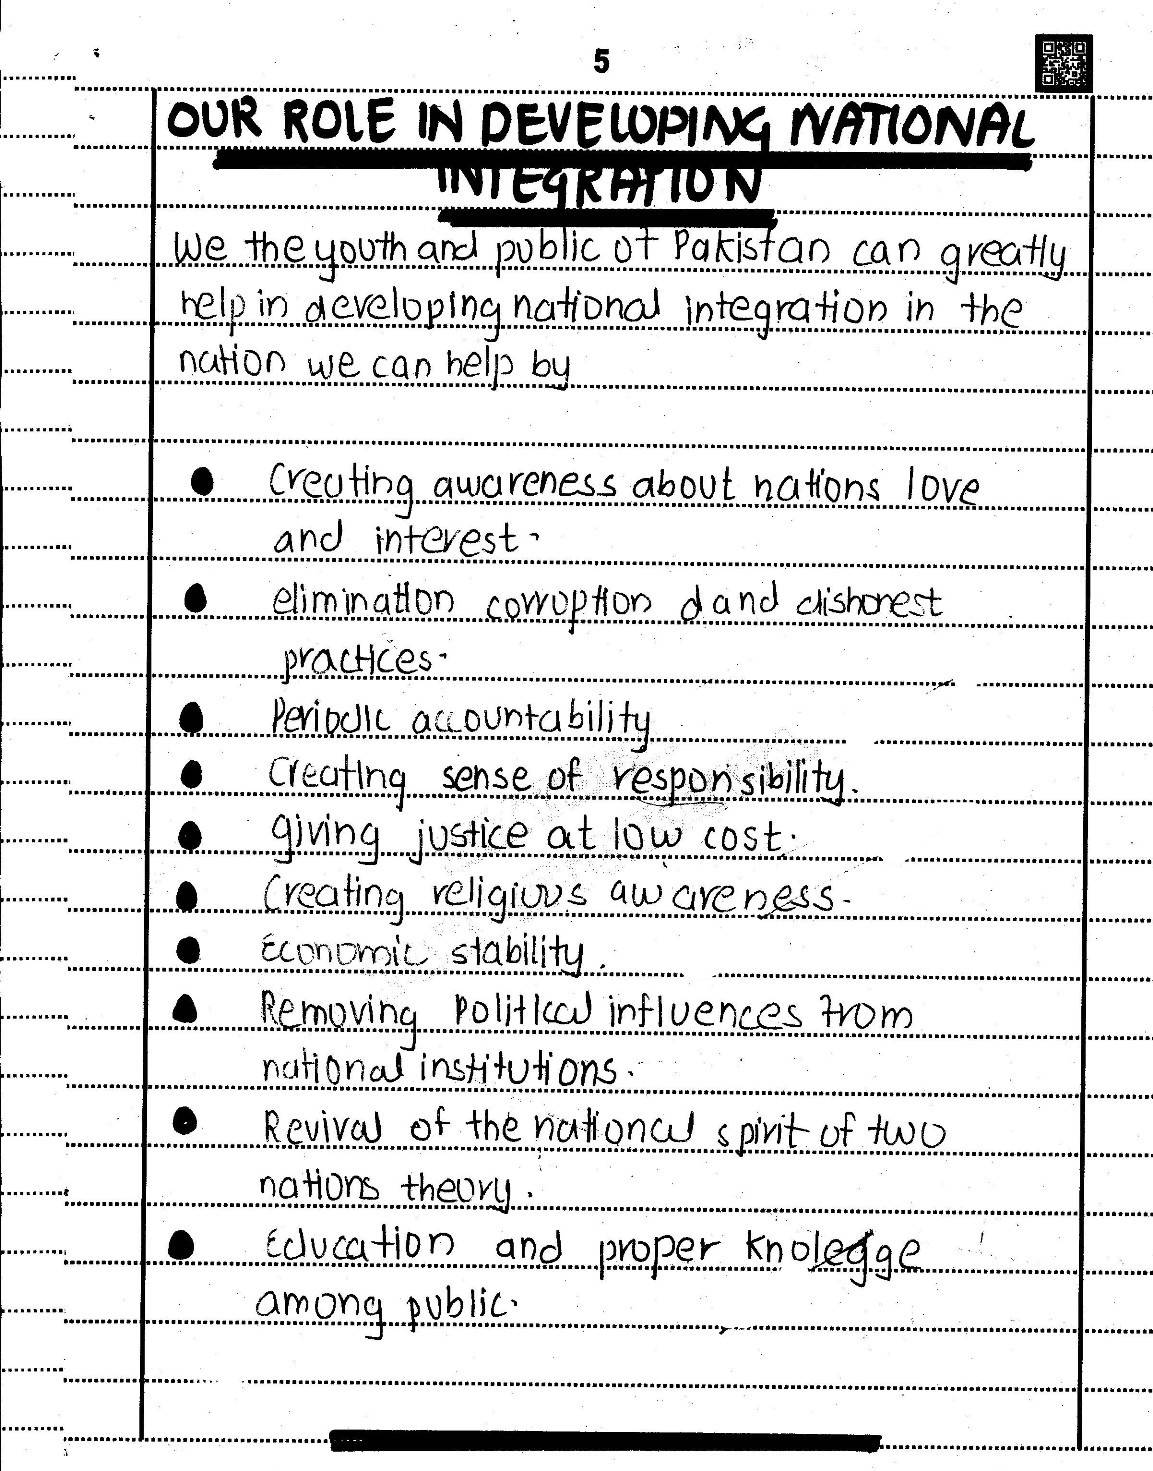 5
OUR ROLE IN DEVELOPING NATIONAL
INTEGRATION
We the youth and public of Pakistan can greatly
help in developing national integration in the
nation we can help by
● Creating awareness about nations love
and interest.
● elimination corruption d and dishonest
practices.
● Periodic accountability
● Creating sense of responsibility.
● giving justice at low cost.
● Creating religious awareness.
● Economic stability.
● Removing Political influences from
national institutions.
● Revival of the national spirit of two
nations theory.
● Education and proper knolegge
among public.